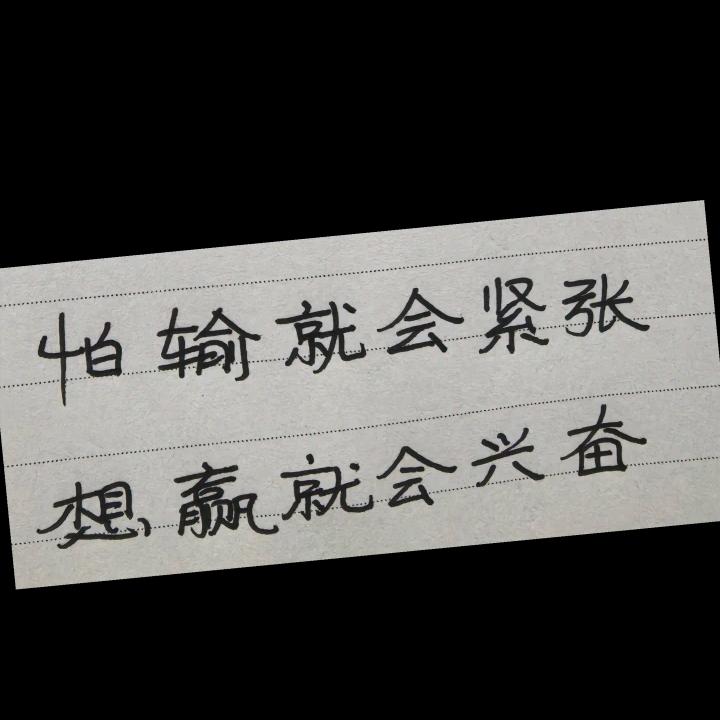 怕输就会紧张
想赢就会兴奋